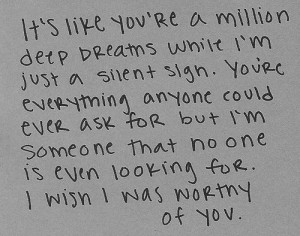 It's like you're a million
deep breaths while I'm
just a silent sigh. You're
everything anyone could
ever ask for but I'm
someone that no one
is even looking for.
I wish I was worthy
of you.